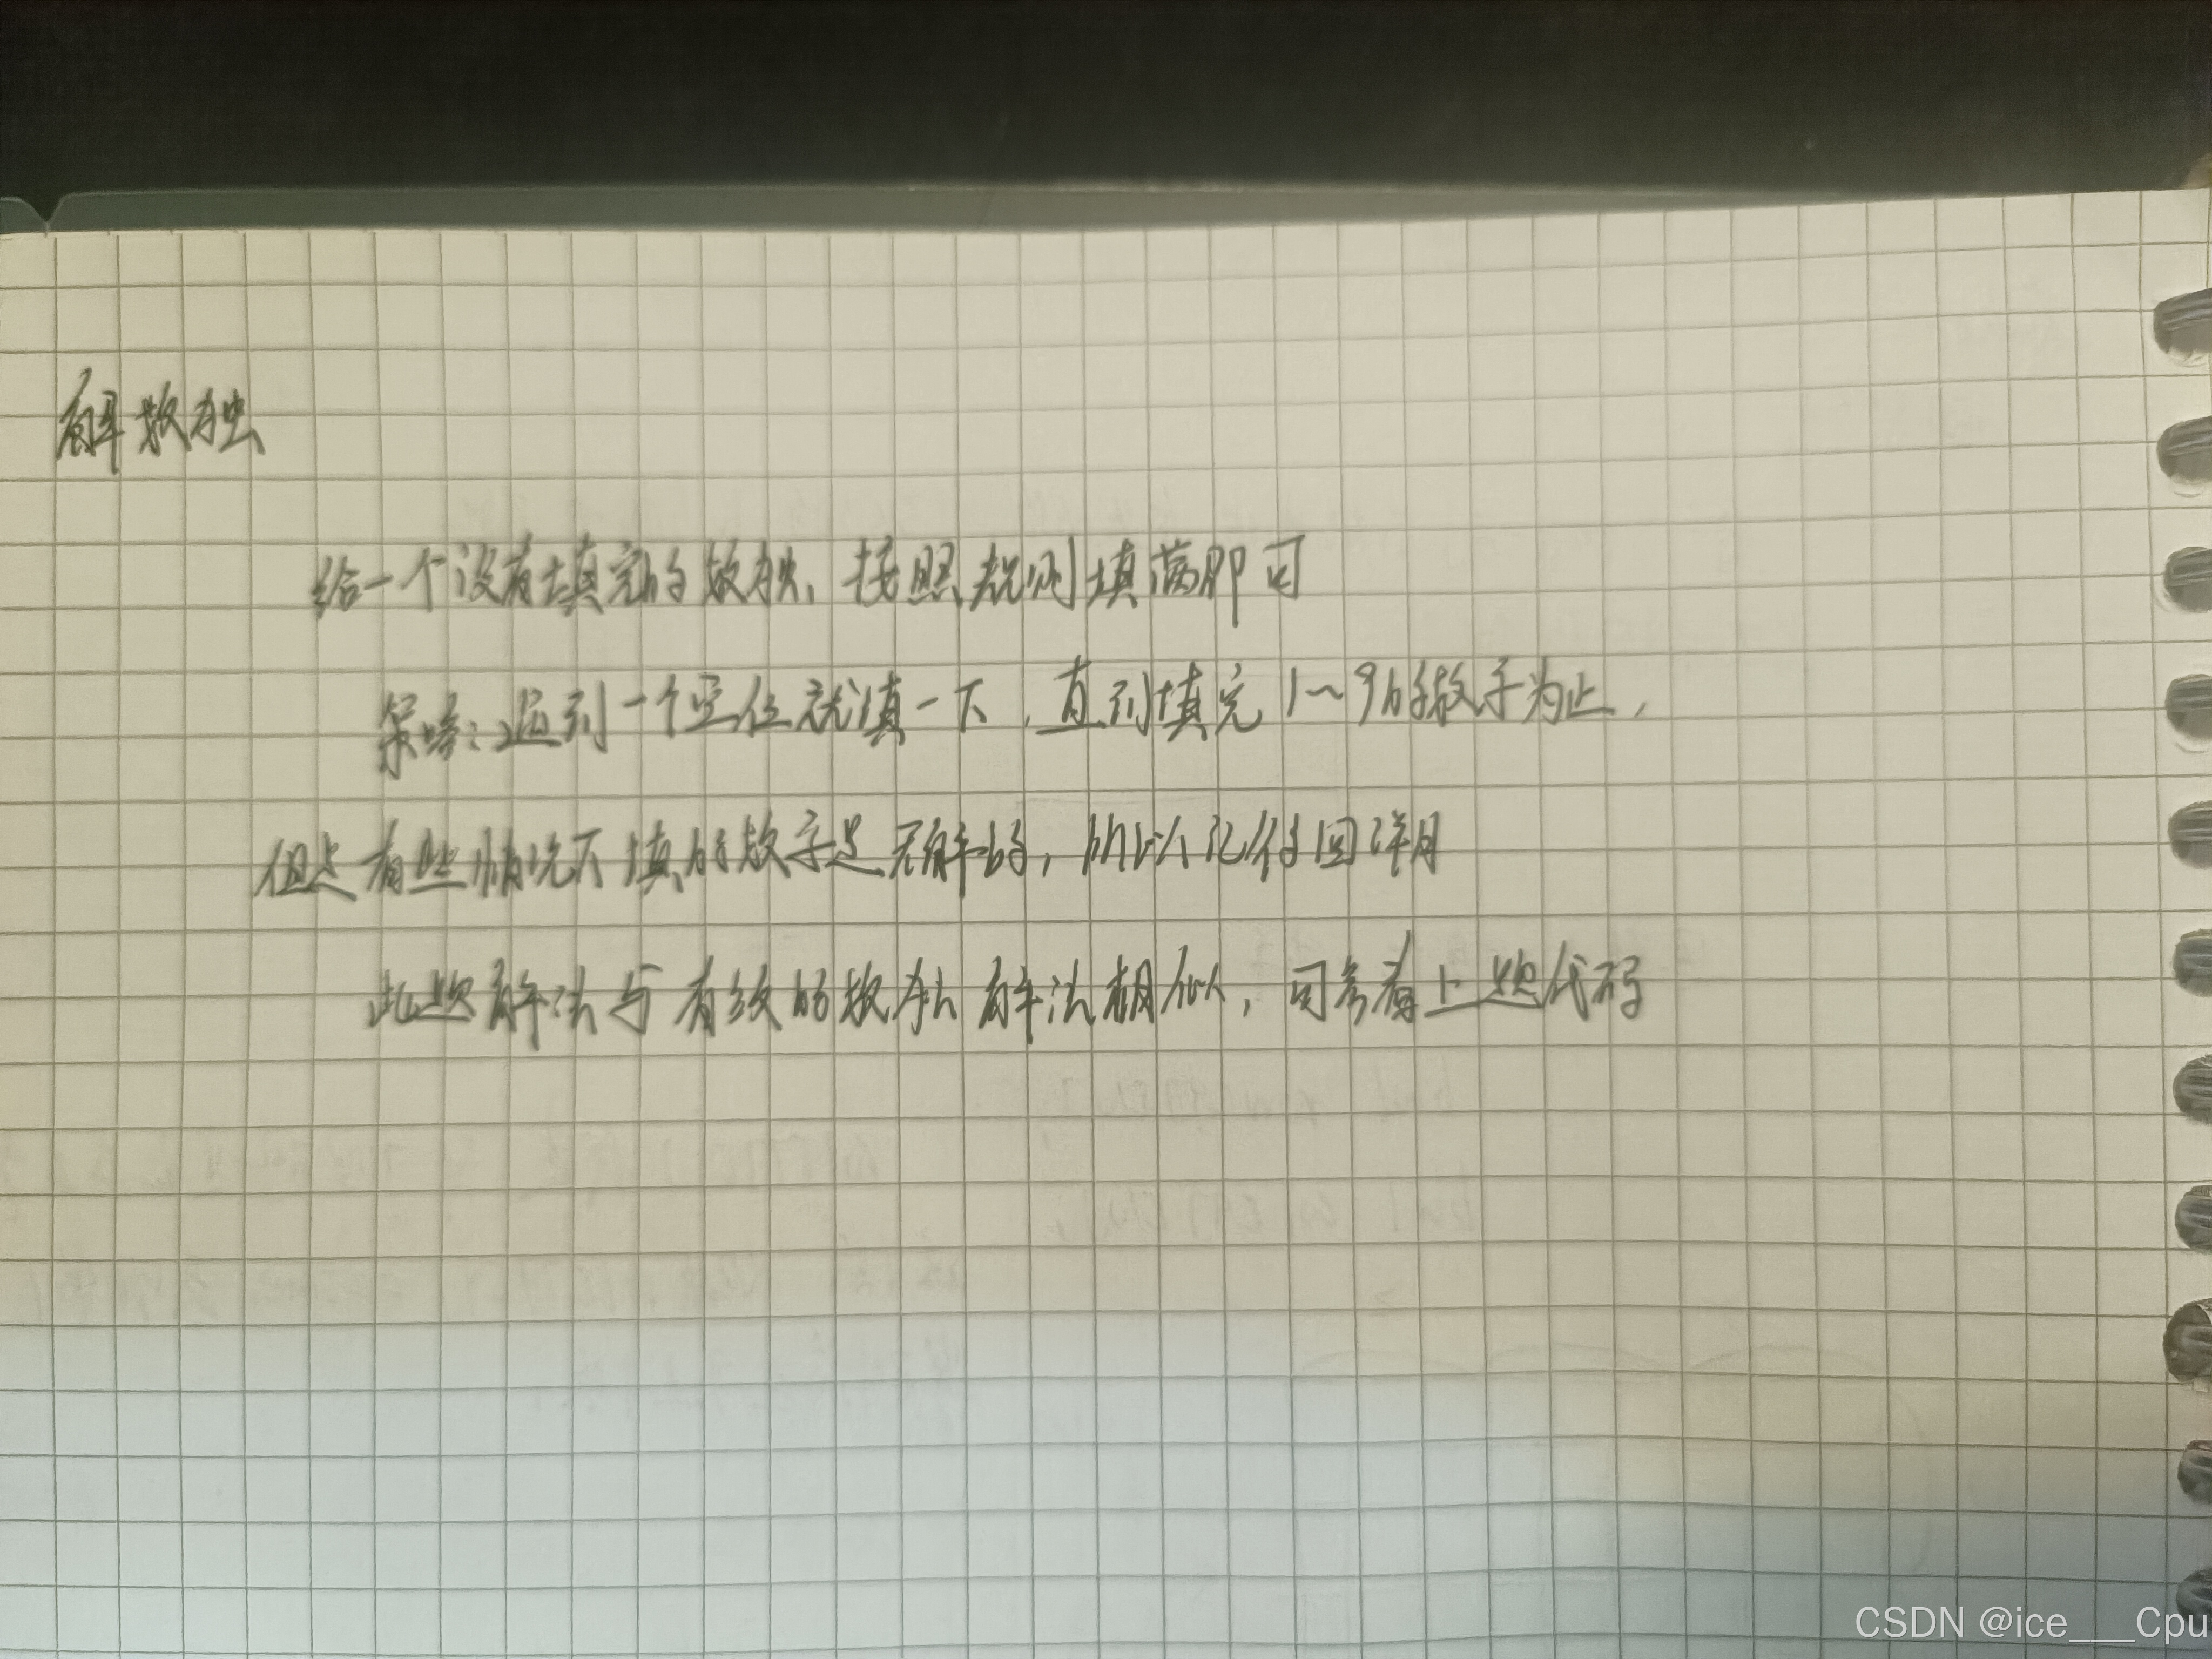 解数独
给一个没有填完的数独，按照规则填满即可
策略：遇到一个空位就填一下，直到填完1～9的数字为止，
但是有些情况下填的数字是无解的，所以记得回溯
此题解法与有效的数独解法相似，可参考上题代码
CSDN @ice___Cpu